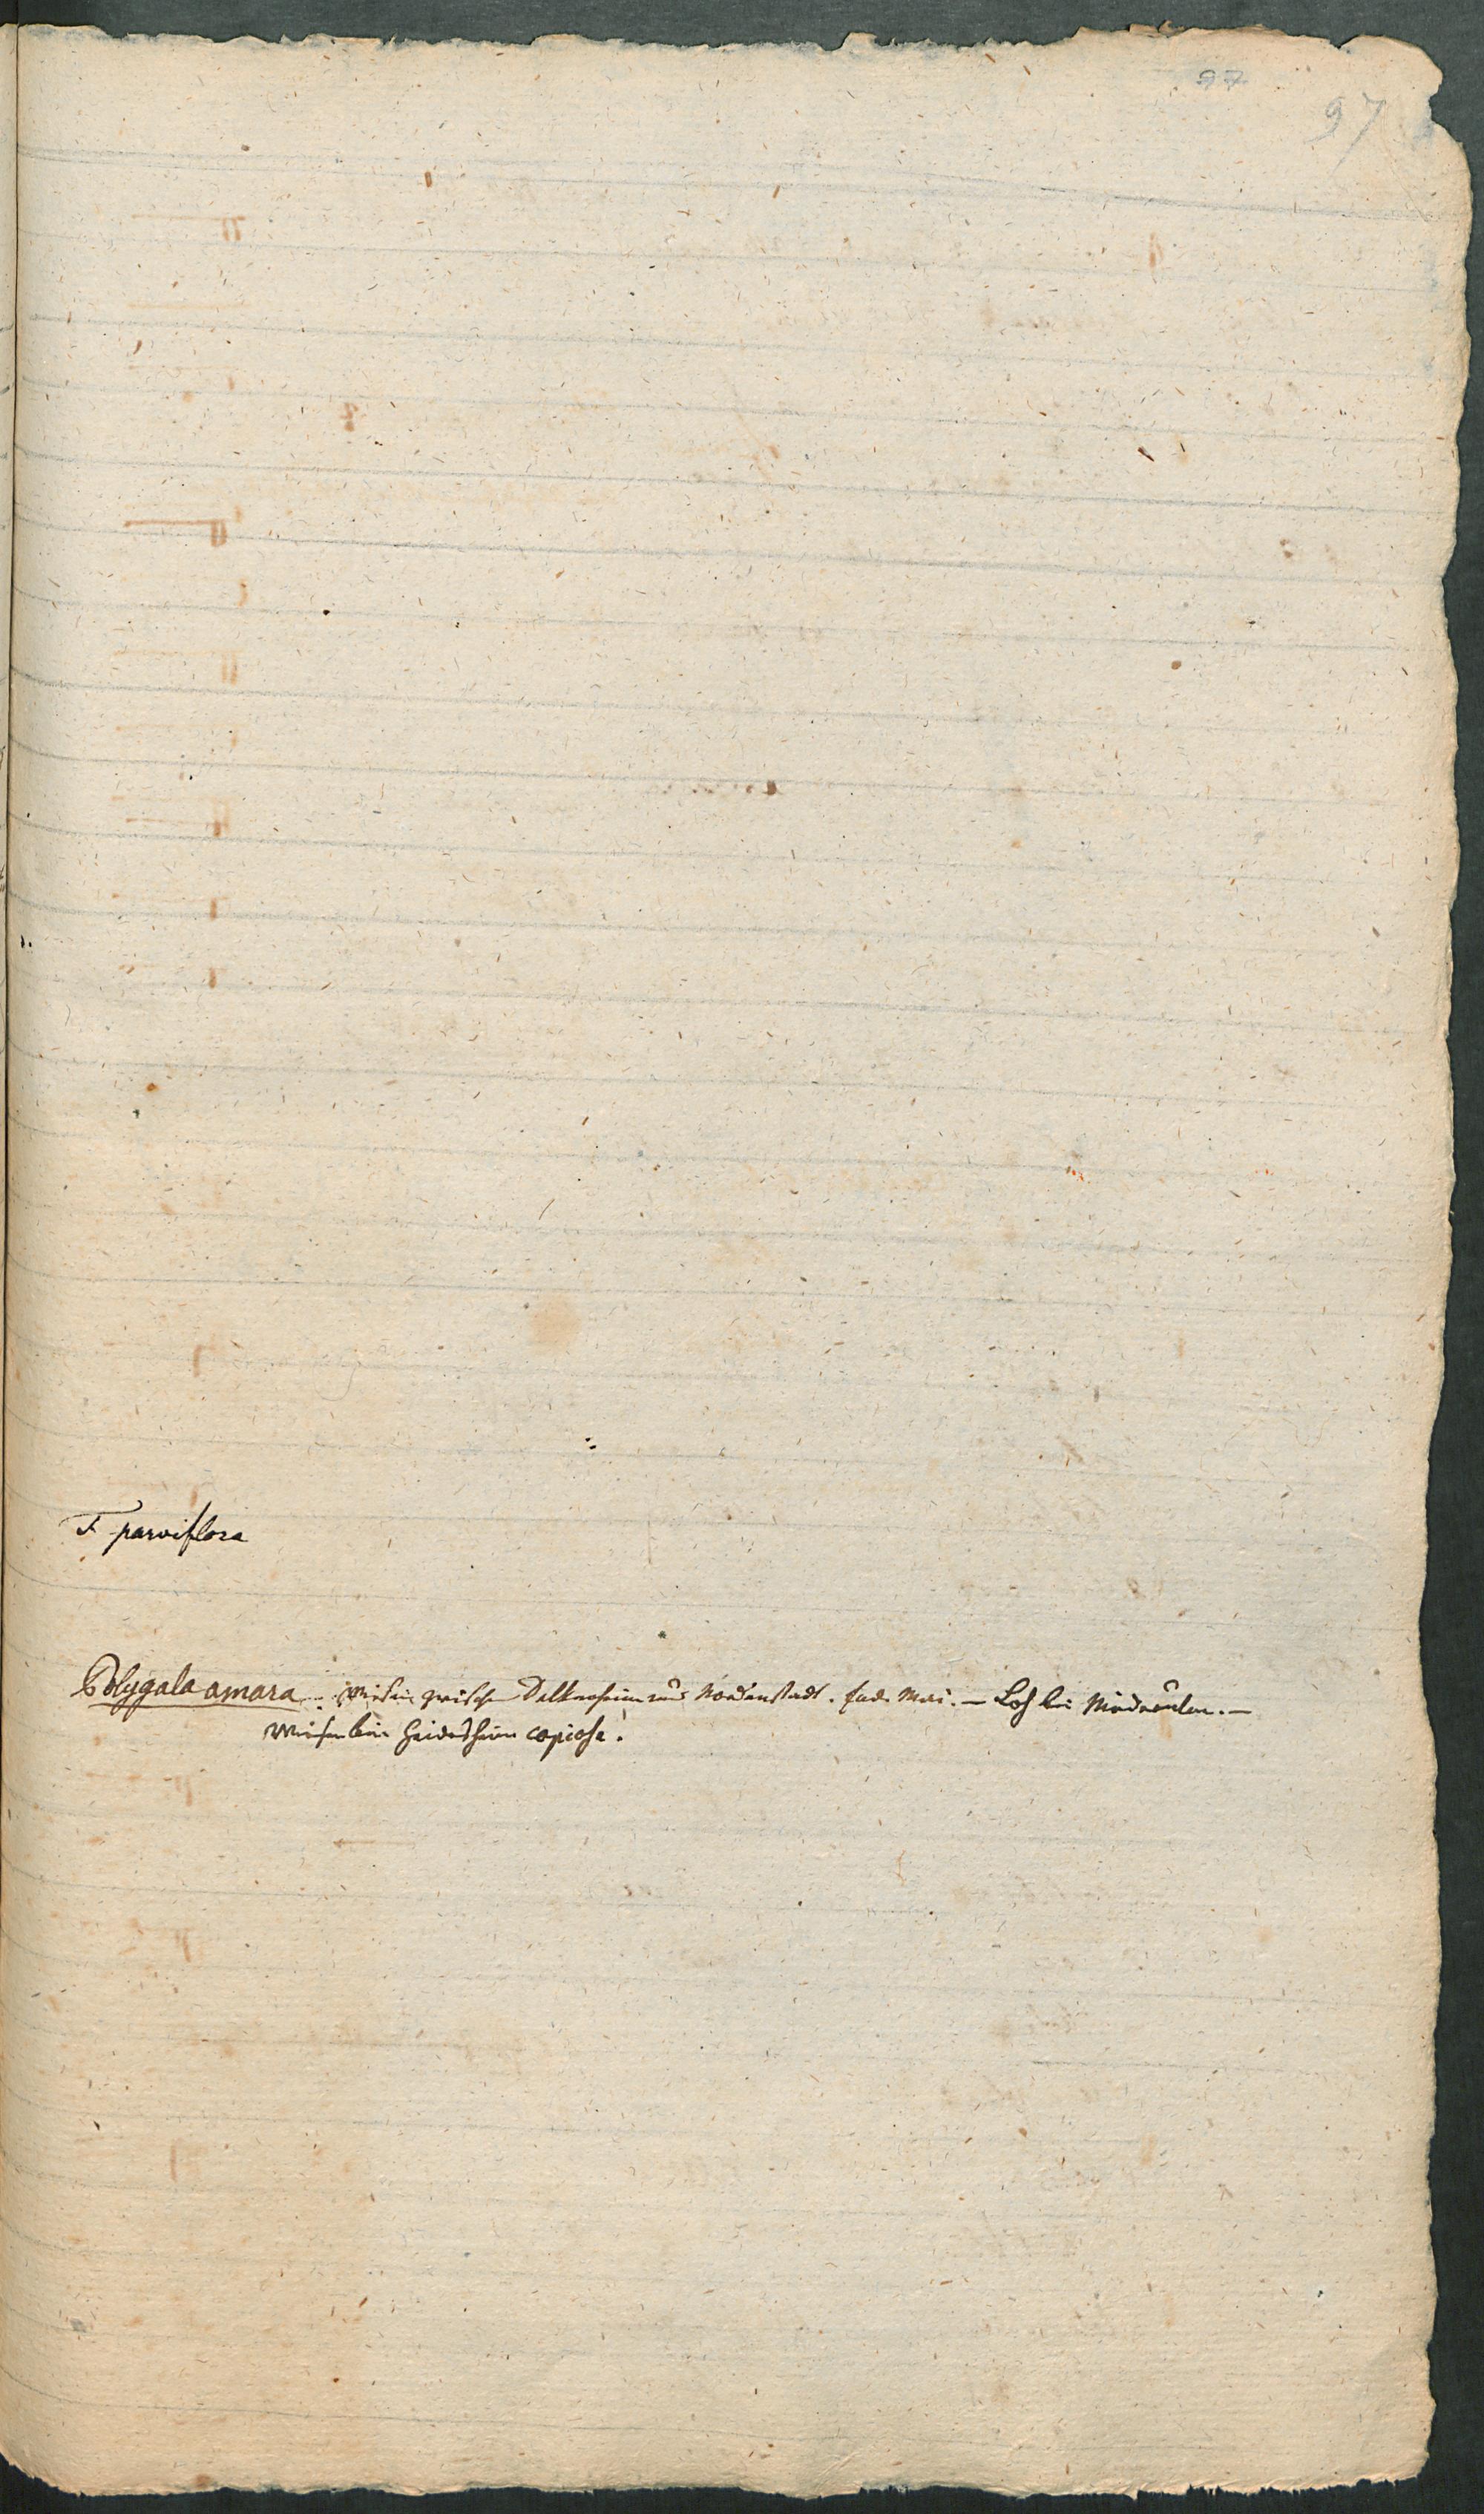 97
97
F parviflora
Polygala amara. Wiesen zwischen Delkenheim und Nordenstadt. Ende Mai. – Loh bei
Wiesen bei Heidesheim copiose.